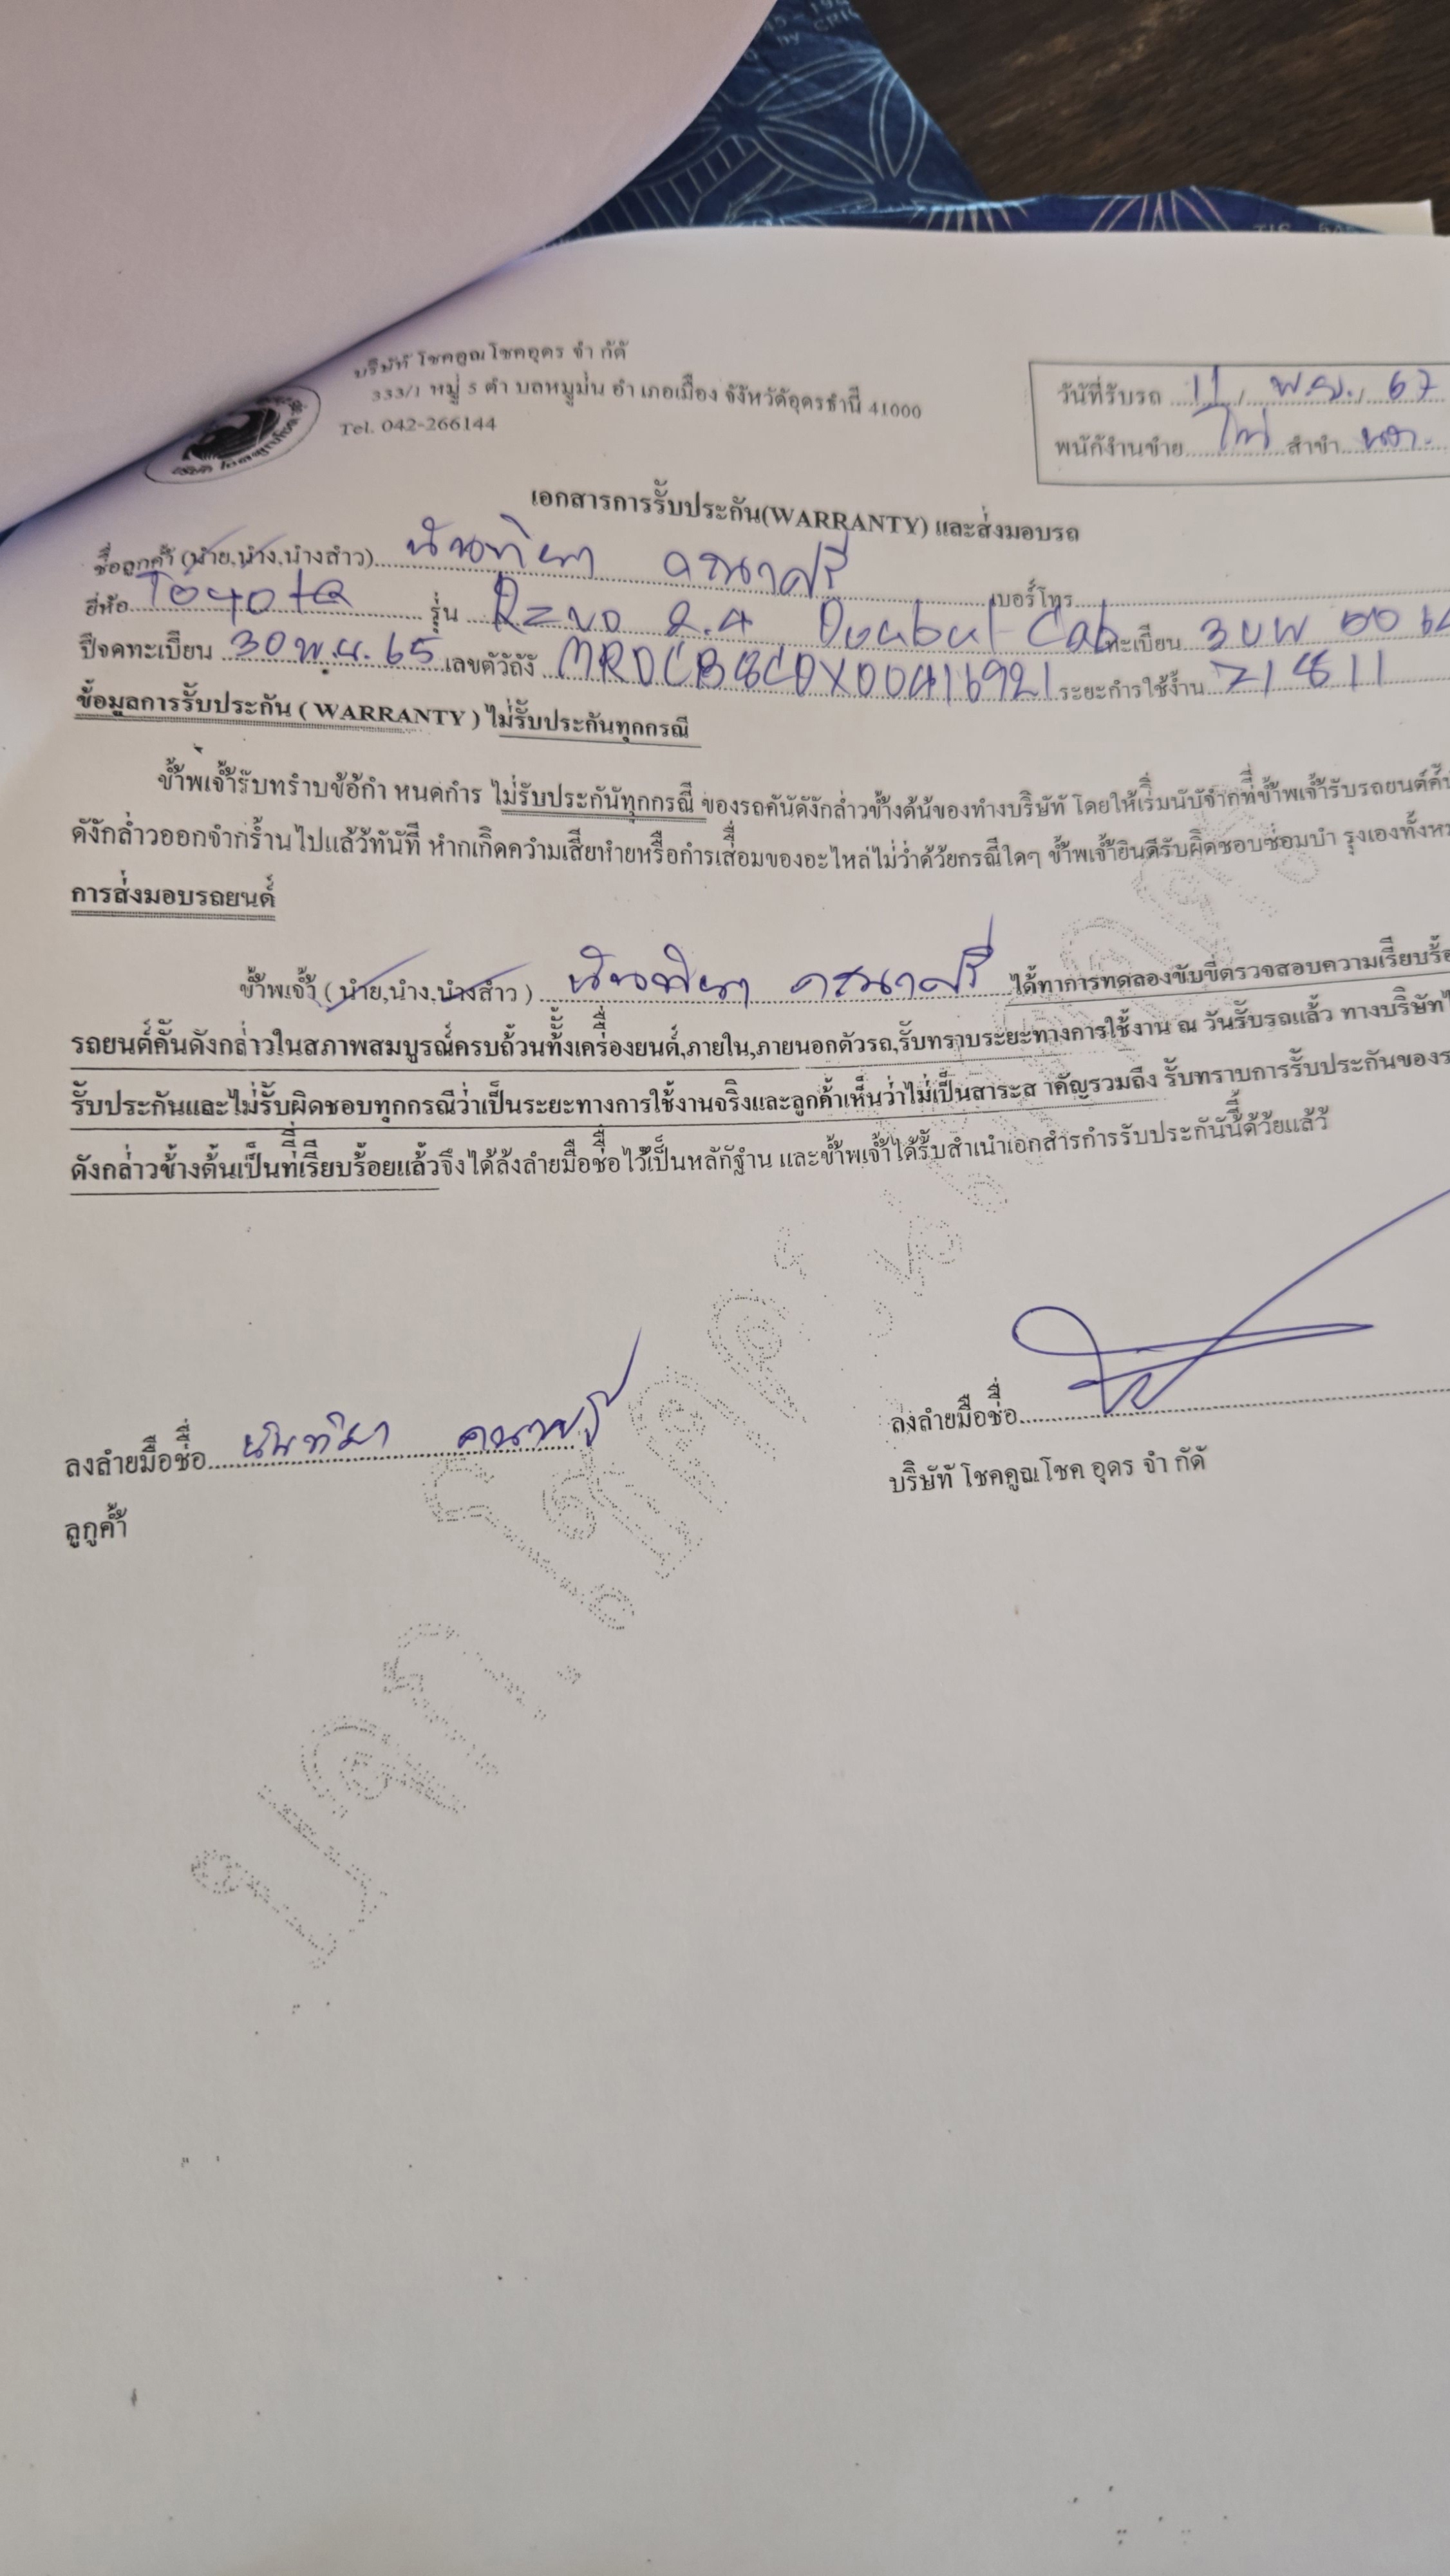 บริษัท โชคคูณโชคอุดร จำ กัด
333/1 หมู่ 5 ตำ บลหมูม่น อำ เภอเมือง จังหวัดอุดรธานี 41000
Tel. 042-266144
วันที่รับรถ 11, พ.ย., 67
พนักงานขาย สาขา
เอกสารการรับประกัน(WARRANTY) และส่งมอบรถ
ชื่อลูกค้า (นาย,นาง,นางสาว) นันทิยา คณาศรี เบอร์โทร
ยี่ห้อ Toyota รุ่น Revo 2.4 Doubul Cab ทะเบียน
ปีจดทะเบียน 30 พ.ย. 65 เลขตัวถัง ระยะการใช้งาน 71811
ข้อมูลการรับประกัน ( WARRANTY ) ไม่รับประกันทุกกรณี
ข้าพเจ้ารับทราบข้อกำ หนดการ ไม่รับประกันทุกกรณี ของรถคันดังกล่าวข้างต้นของทางบริษัท โดยให้เริ่มนับจากที่ข้าพเจ้ารับรถยนต์
ดังกล่าวออกจากร้านไปแล้วทันที หากเกิดความเสียหายหรือการเสื่อมของอะไหล่ไม่ว่าด้วยกรณีใดๆ ข้าพเจ้ายินดีรับผิดชอบซ่อมบำ รุงเอง
การส่งมอบรถยนต์
ข้าพเจ้า ( นาย,นาง,นางสาว ) นันทิยา คณาศรี ได้ทำการทดลองขับขี่ตรวจสอบความเรียบร้อ
รถยนต์คันดังกล่าวในสภาพสมบูรณ์ครบถ้วนทั้งเครื่องยนต์,ภายใน,ภายนอกตัวรถ,รับทราบระยะทางการใช้งาน ณ วันรับรถแล้ว ทางบริษัท
รับประกันและไม่รับผิดชอบทุกกรณีว่าเป็นระยะทางการใช้งานจริงและลูกค้าเห็นว่าไม่เป็นสาระส าคัญรวมถึง รับทราบการรับประกันของ
ดังกล่าวข้างต้นเป็นที่เรียบร้อยแล้วจึงได้ลงลายมือชื่อไว้เป็นหลักฐาน และข้าพเจ้าได้รับสำเนาเอกสารการรับประกันนี้ด้วยแล้ว
ลงลายมือชื่อ นันทิยา คณาศรี
ลูกค้า
ลงลายมือชื่อ
บริษัท โชคคูณโชค อุดร จำ กัด